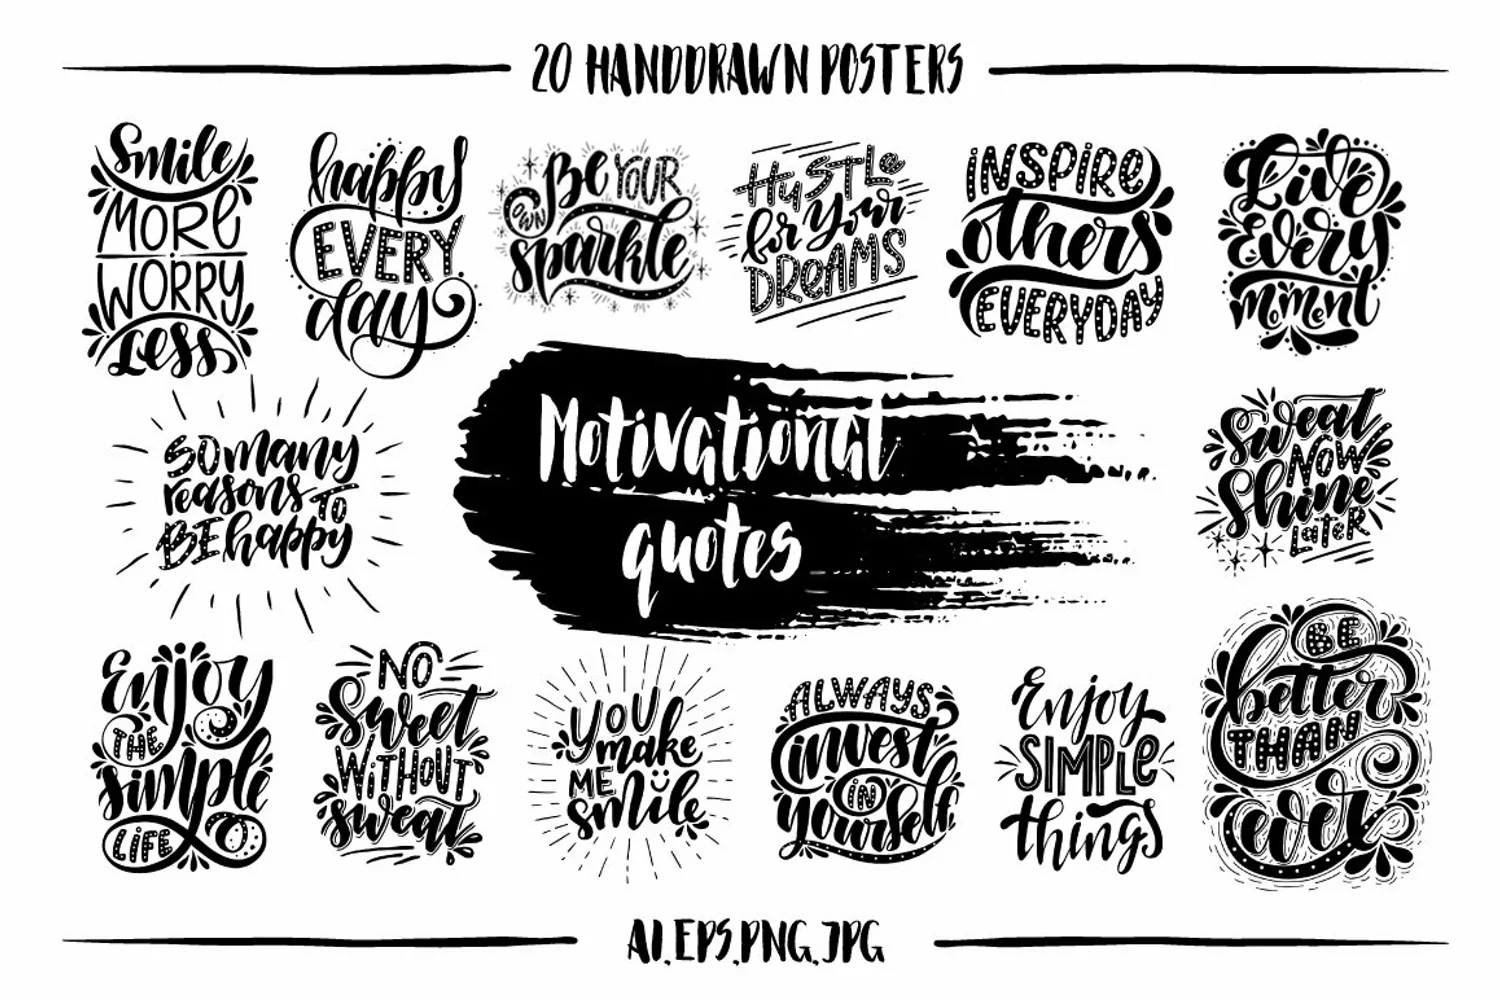 20 HANDDRAWN POSTERS
Smile
MORE
WORRY
Less
happy
EVERY
day
Be YOUR
OWN
sparkle
HUSTLe
for your
DREAMS
iNSPiRe
others
EVERYDAY
Live
Every
moment
SO many
reasons TO
BE happy
Motivational
quotes
Sweat
NOW
Shine
LateR
Enjoy
THE
simple
LiFE
NO
Sweet
WiTHOUT
sweat
YOU
make
ME
smile
ALWAYS
invest
IN
yourself
Enjoy
SIMPLE
things
BE
better
THAN
ever
AI, EPS, PNG, JPG